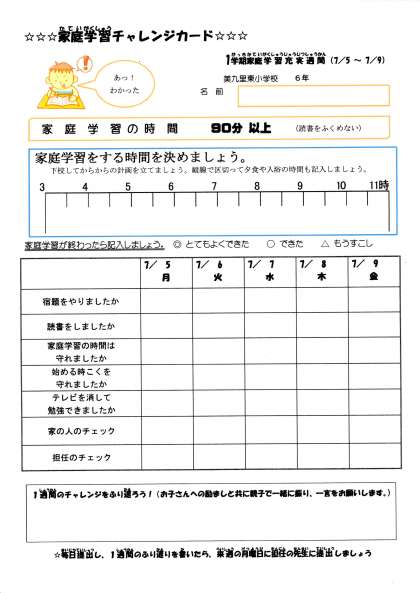 ☆☆☆家庭学習チャレンジカード☆☆☆
1学期家庭学習充実週間（7/5 ～ 7/9）
美九里東小学校　６年
名 前
あっ！
わかった
家 庭 学 習 の 時 間　90分 以上　（読書をふくめない）
家庭学習をする時間を決めましょう。
下校してからからの計画を立てましょう。縦線で区切って夕食や入浴の時間も記入しましょう。
3　4　5　6　7　8　9　10　11時
家庭学習が終わったら記入しましょう。　◎ とてもよくできた　○ できた　△ もうすこし
7／ 5　7／ 6　7／ 7　7／ 8　7／ 9
月　火　水　木　金
宿題をやりましたか
読書をしましたか
家庭学習の時間は
守れましたか
始める時こくを
守れましたか
テレビを消して
勉強できましたか
家の人のチェック
担任のチェック
１週間のチャレンジをふり返ろう！（お子さんへの励ましと共に親子で一緒に振り、一言をお願いします。）
☆毎日提出し、１週間のふり返りを書いたら、来週の月曜日に担任の先生に提出しましょう